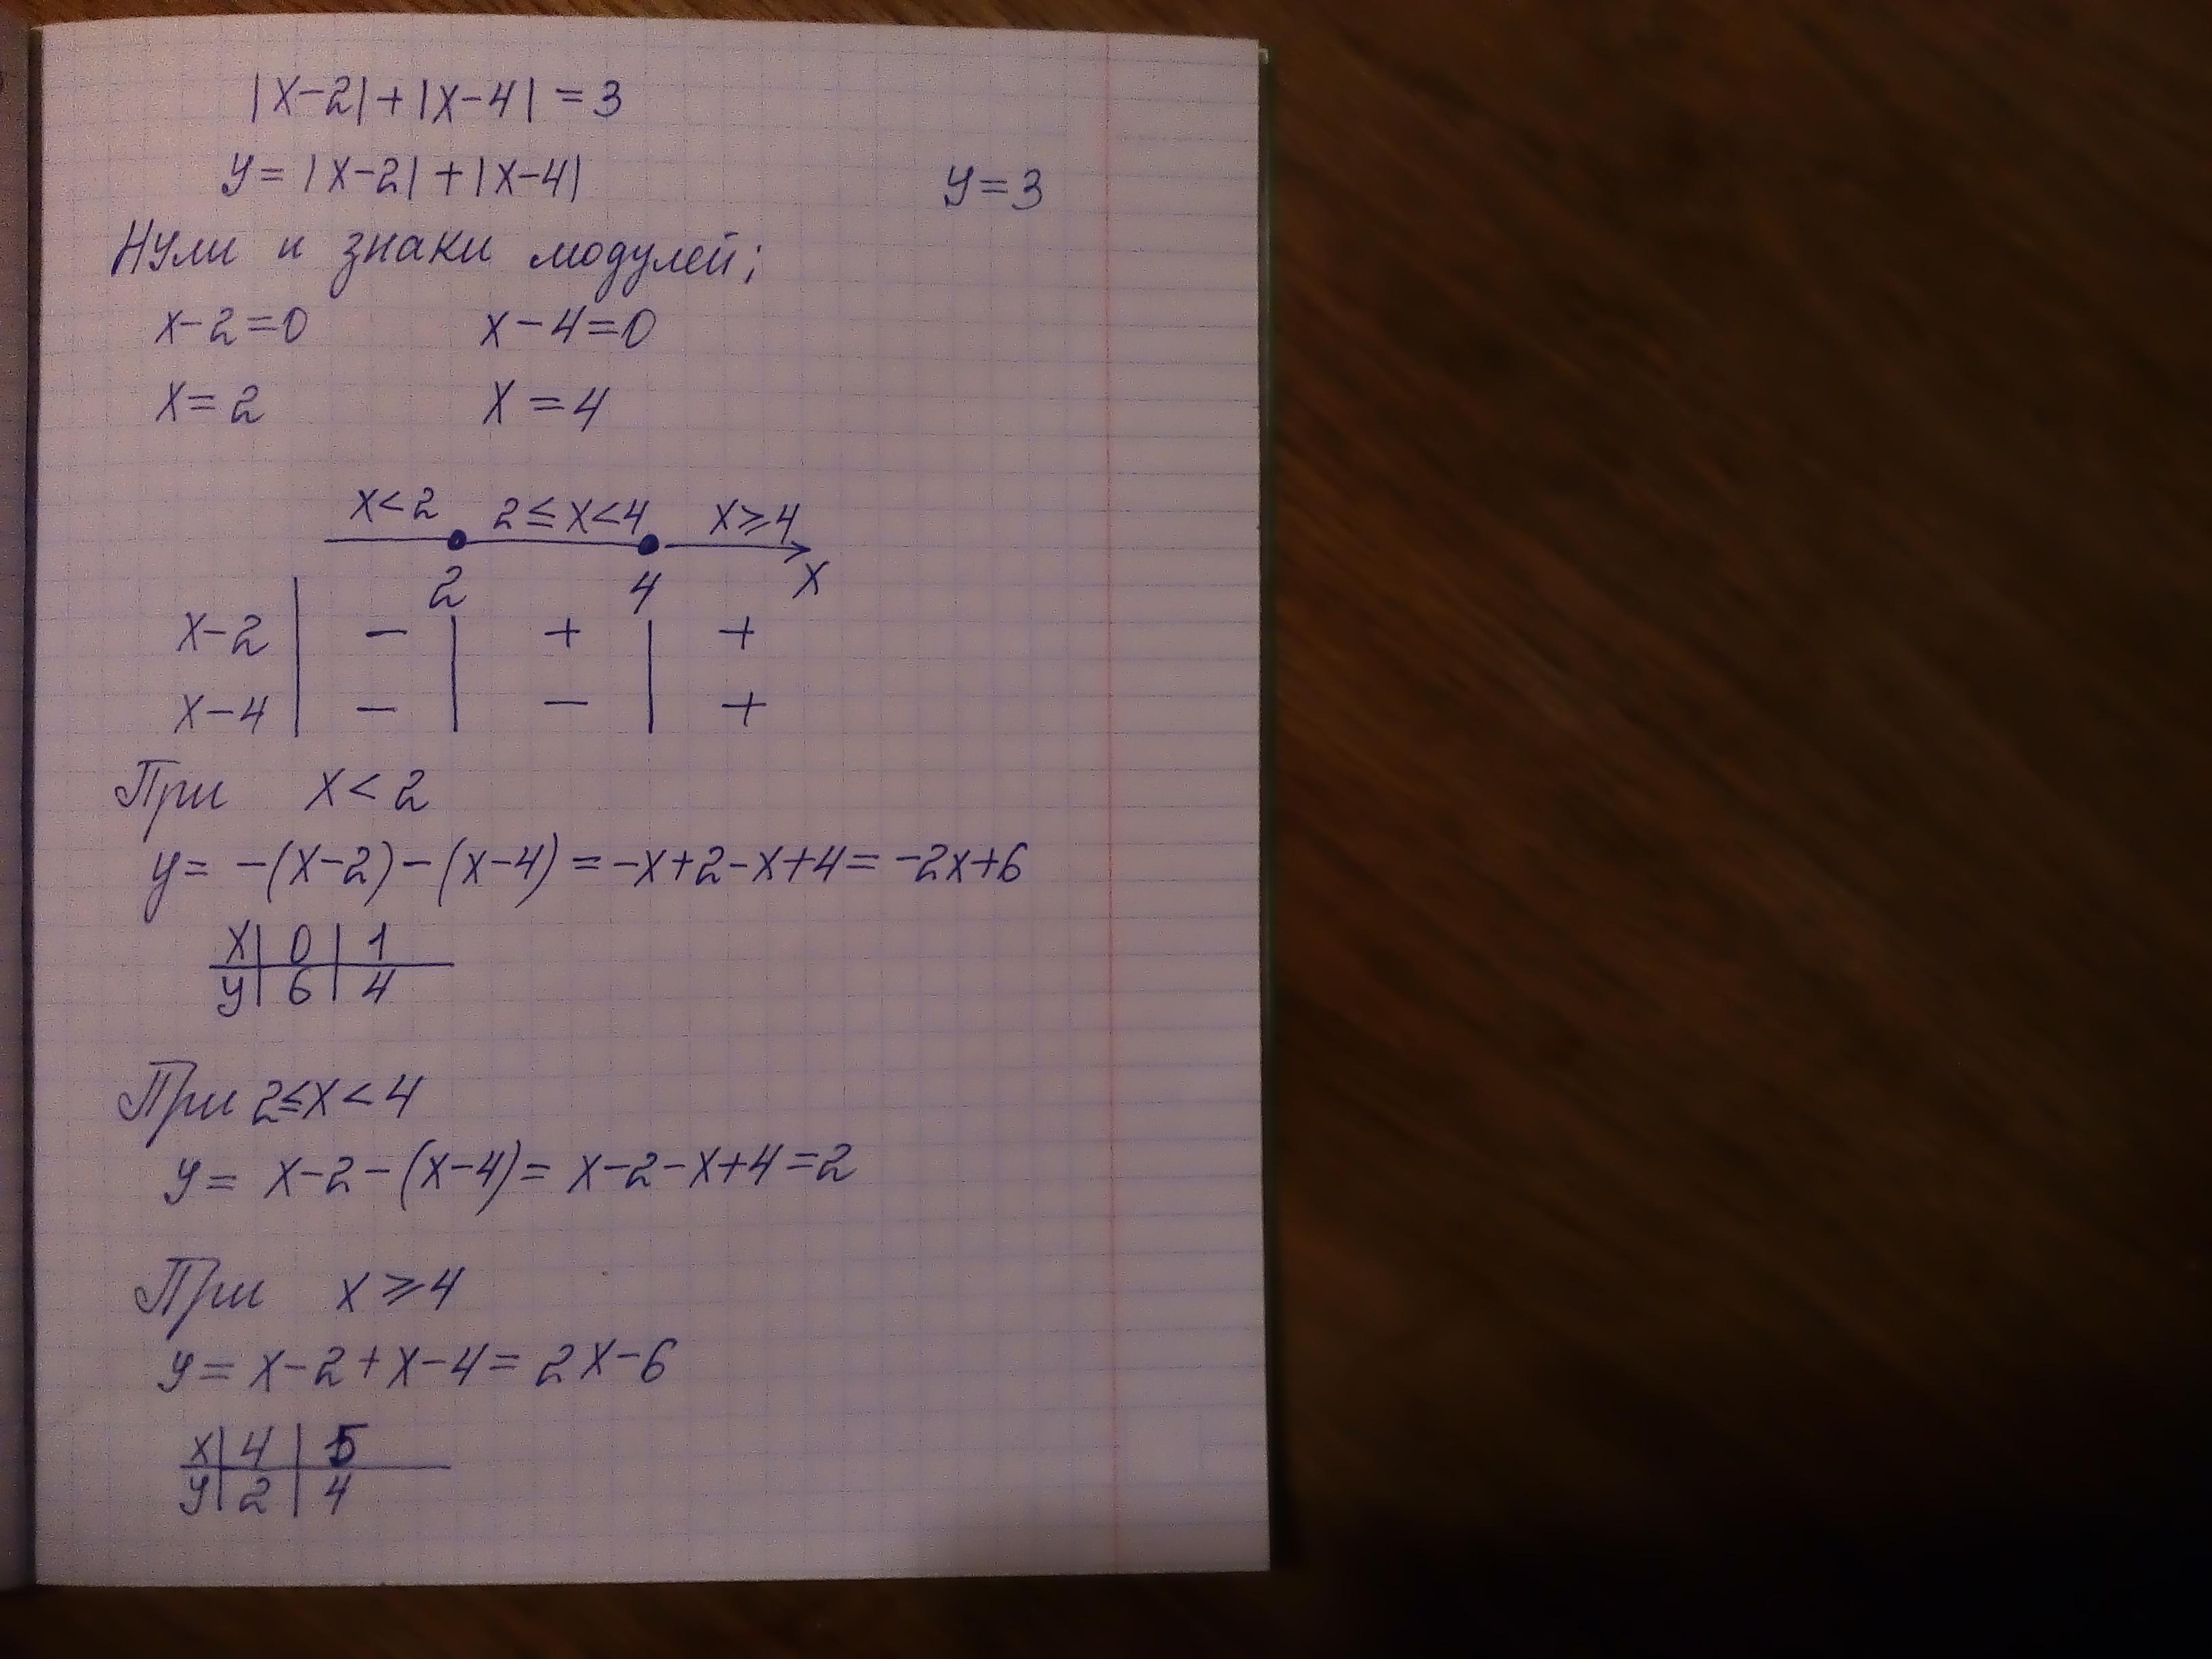 |x-2|+|x-4| = 3
y= |x-2|+|x-4| y=3
Нули и знаки модулей;
x-2=0 x-4=0
x=2 x=4
x<2 2≤x<4 x≥4
2 4 x
x-2 | - | + | +
x-4 | - | - | +
При x<2
y= -(x-2)-(x-4) = -x+2-x+4= -2x+6
x | 0 | 1
y | 6 | 4
При 2≤x<4
y= x-2-(x-4)= x-2-x+4=2
При x≥4
y= x-2+x-4= 2x-6
x | 4 | 5
y | 2 | 4